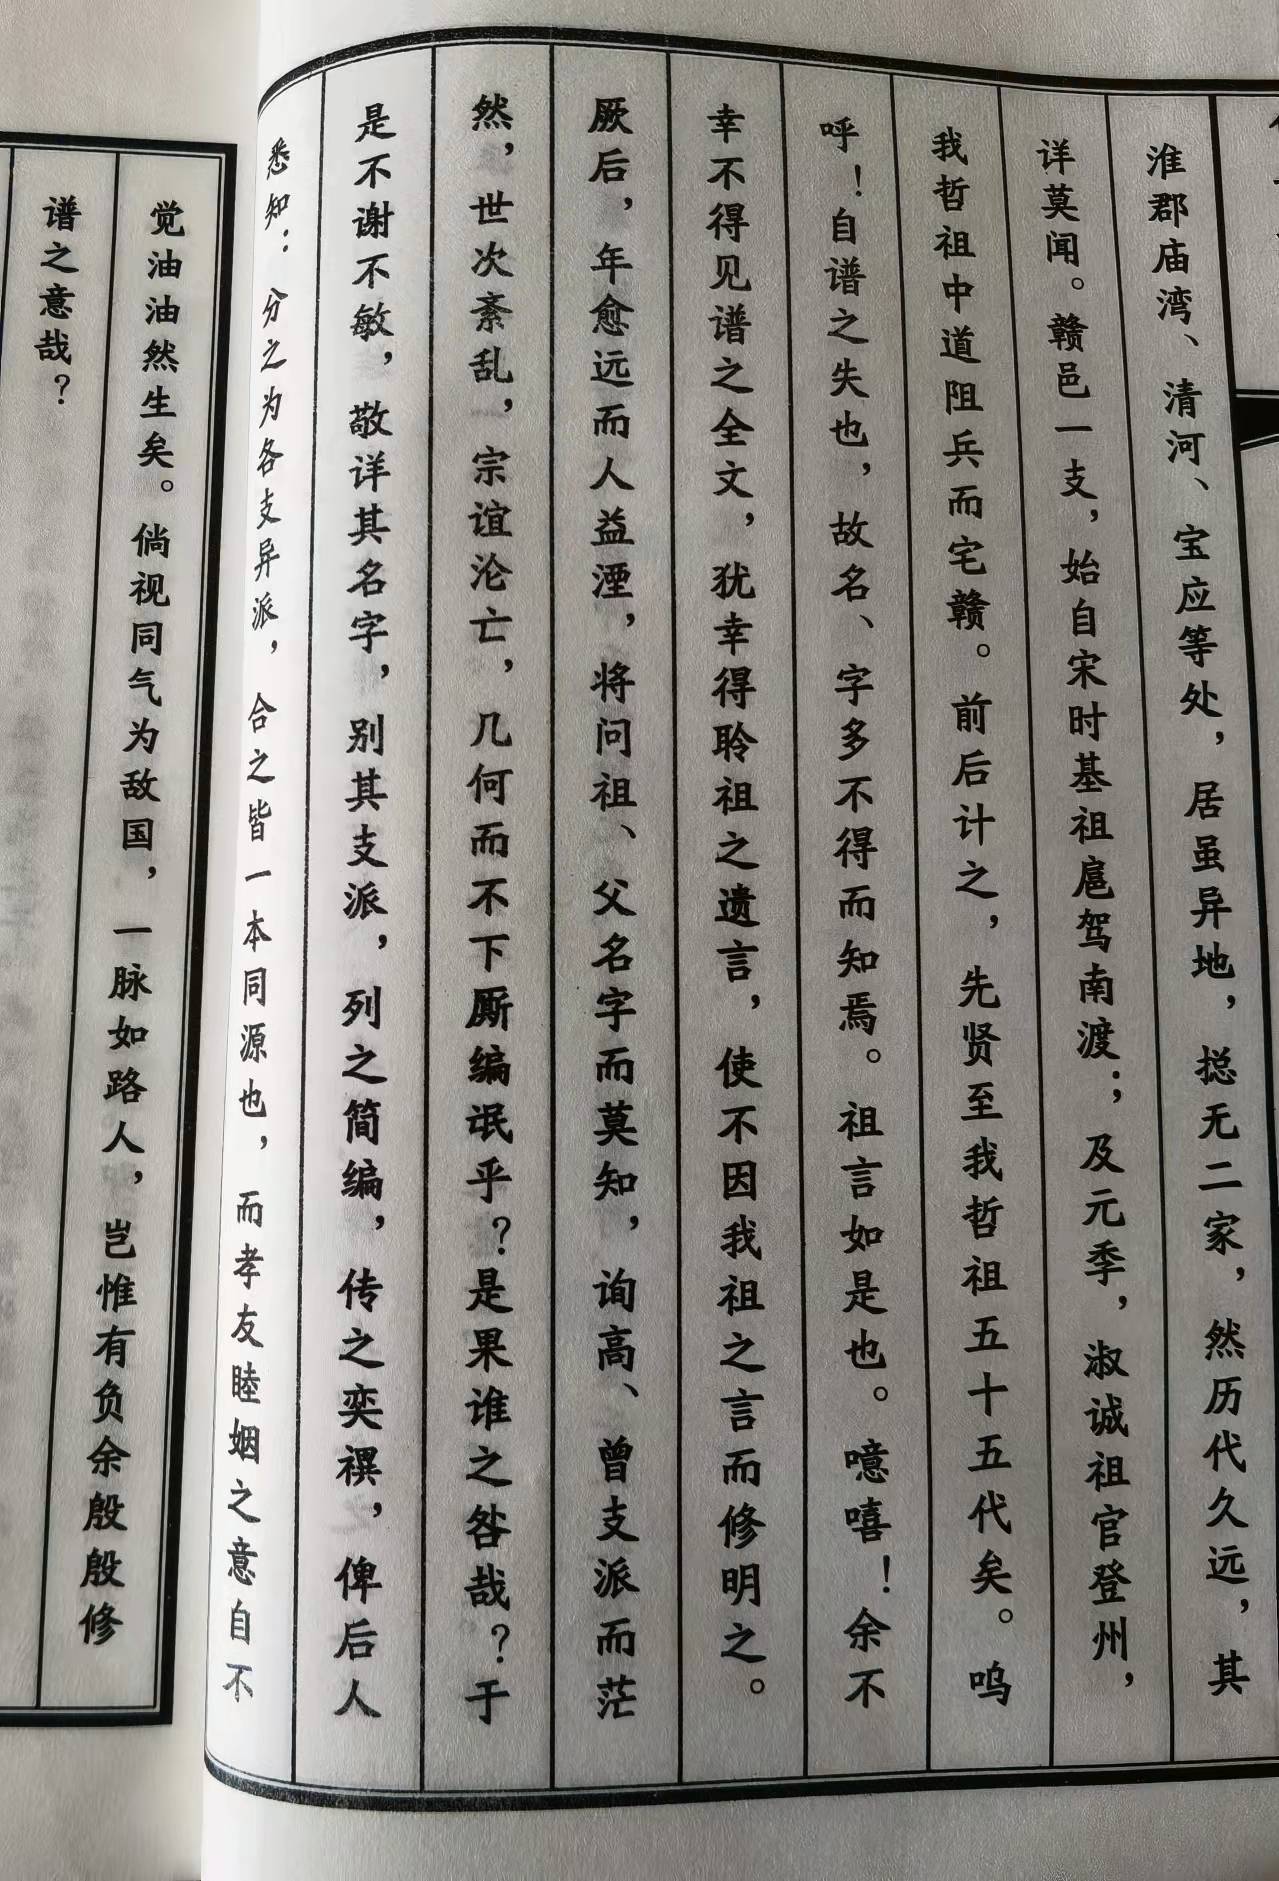 淮郡庙湾、清河、宝应等处，居虽异地，揔无二家，然历代久远，其
详莫闻。赣邑一支，始自宋时基祖扈驾南渡；及元季，淑诚祖官登州，
我哲祖中道阻兵而宅赣。前后计之，先贤至我哲祖五十五代矣。呜
呼！自谱之失也，故名、字多不得而知焉。祖言如是也。噫嘻！余不
幸不得见谱之全文，犹幸得聆祖之遗言，使不因我祖之言而修明之。
厥后，年愈远而人益湮，将问祖、父名字而莫知，询高、曾支派而茫
然，世次紊乱，宗谊沦亡，几何而不下厮编氓乎？是果谁之咎哉？于
是不谢不敏，敬详其名字，别其支派，列之简编，传之奕禩，俾后人
悉知：分之为各支异派，合之皆一本同源也，而孝友睦姻之意自不
觉油油然生矣。倘视同气为敌国，一脉如路人，岂惟有负余殷殷修
谱之意哉？